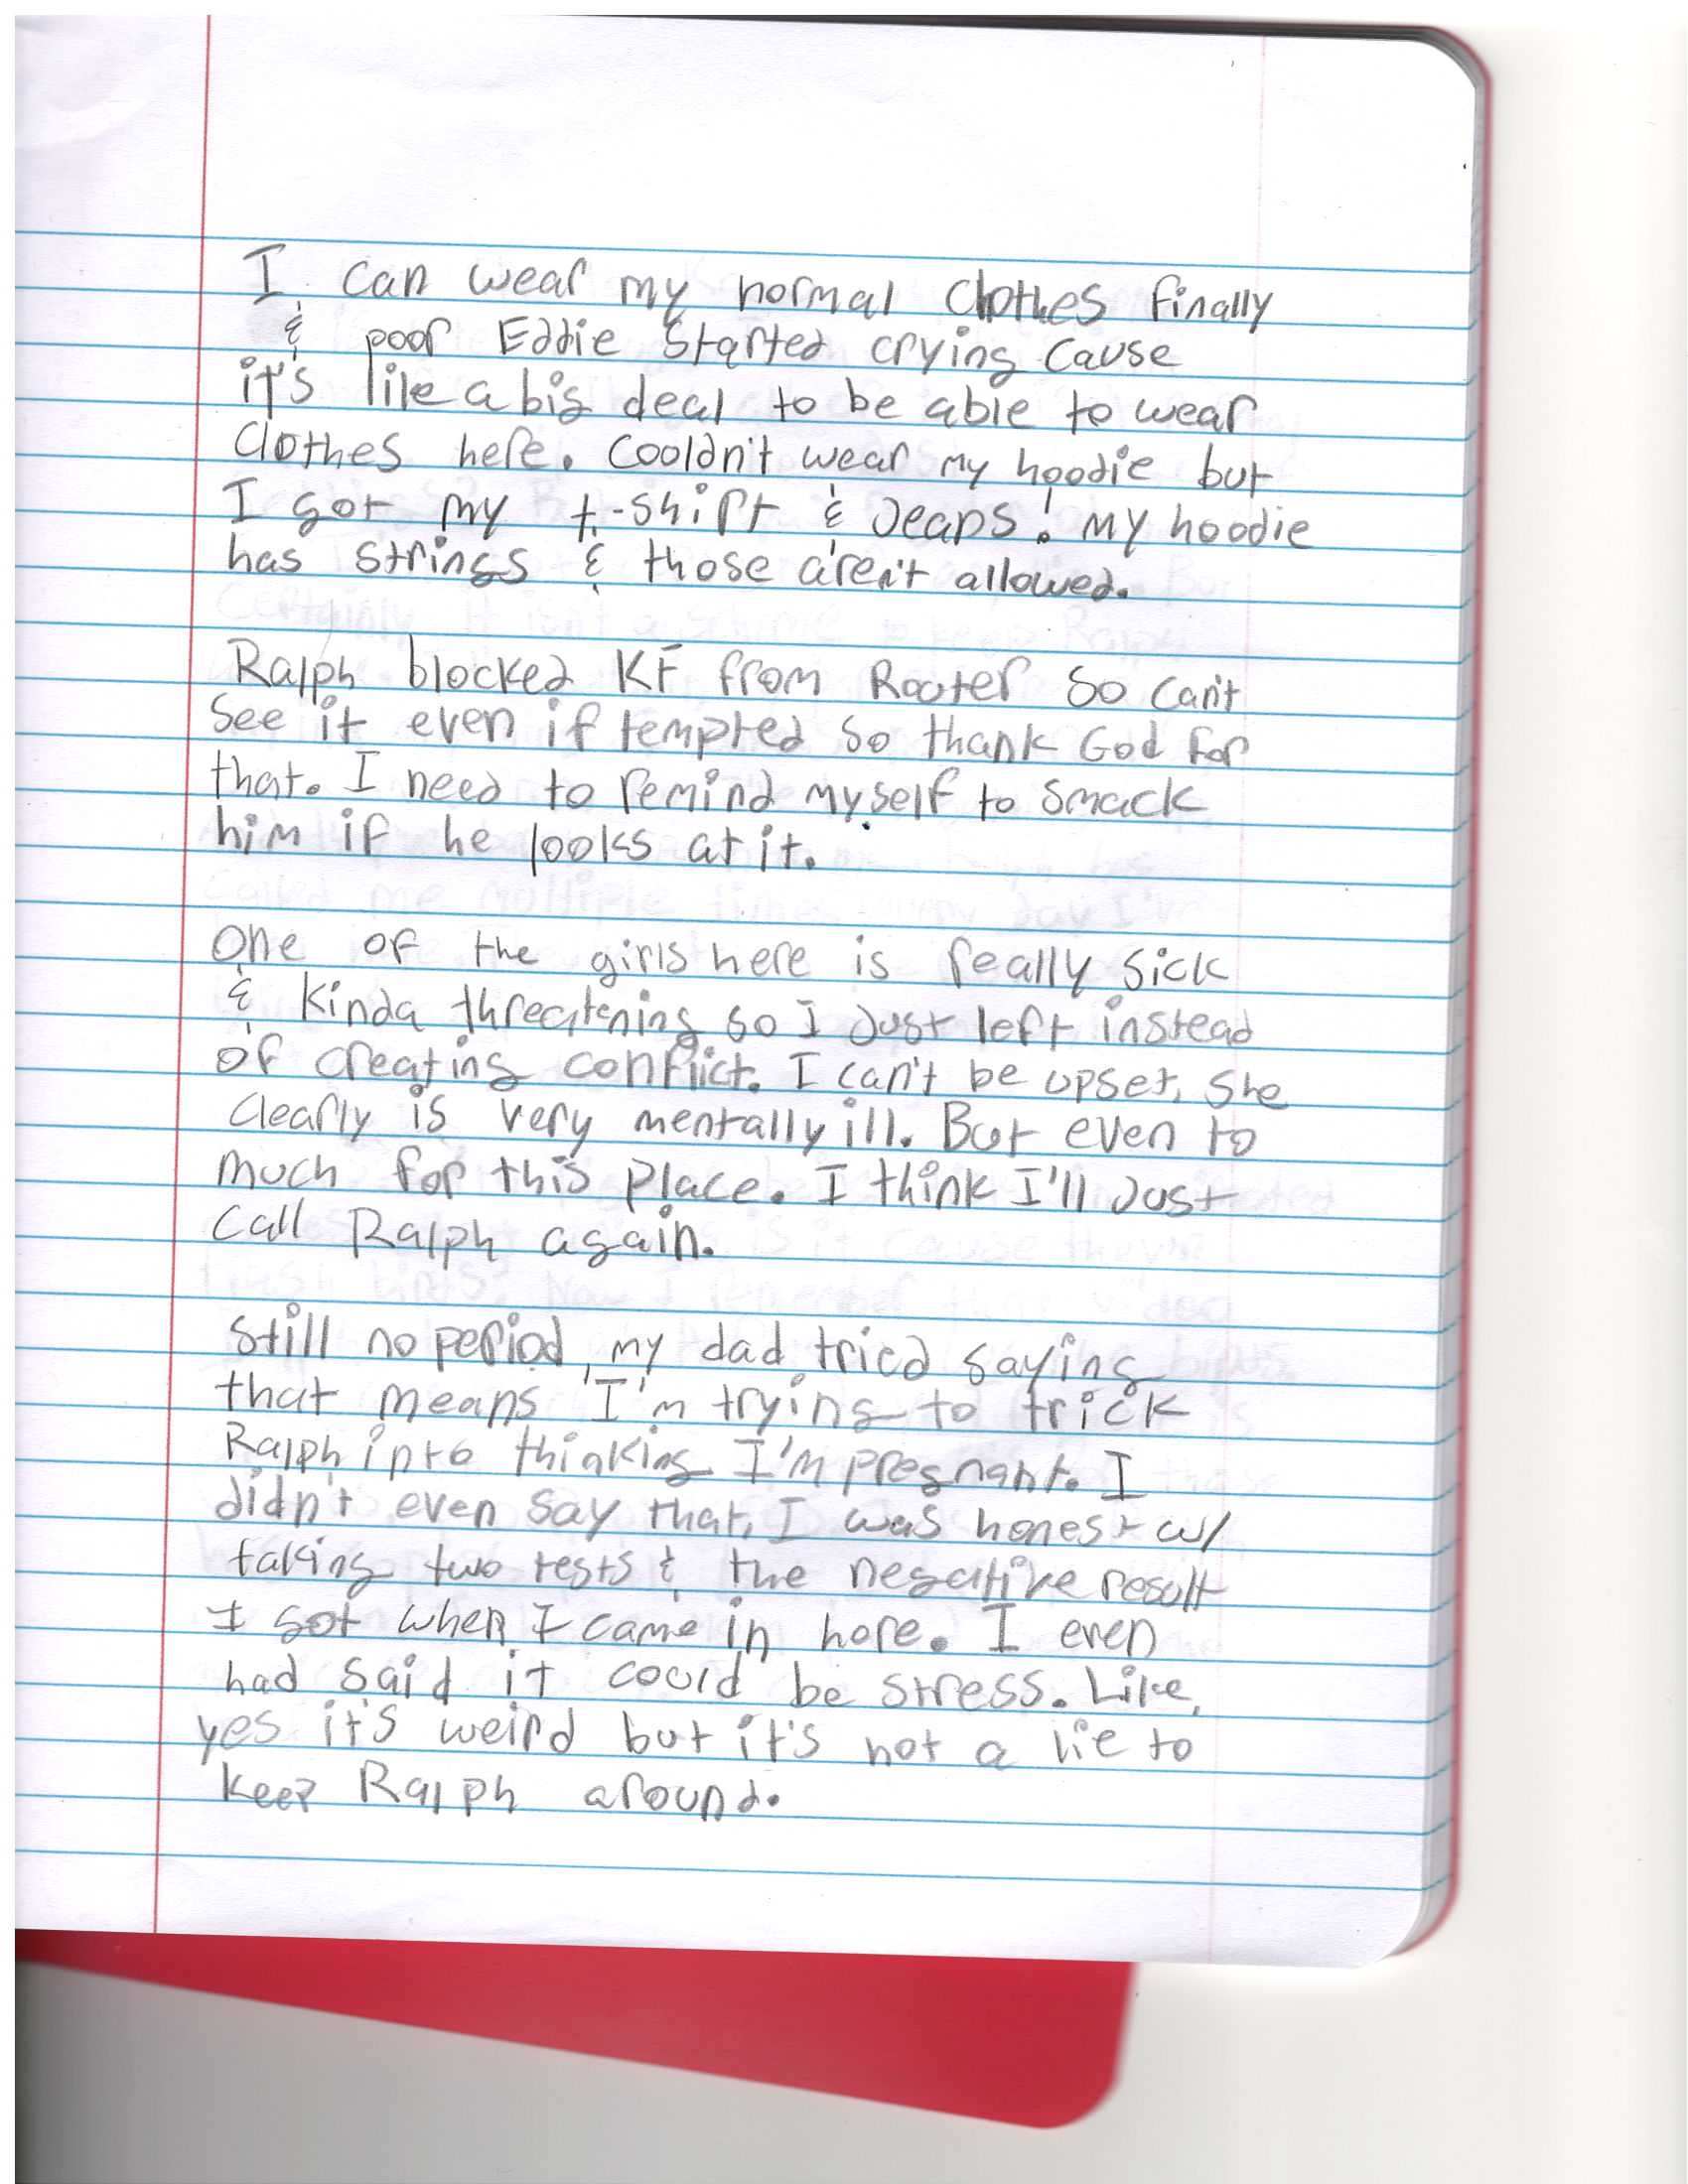 I can wear my normal clothes finally
& poor Eddie started crying cause
it's like a big deal to be able to wear
clothes here. Couldn't wear my hoodie but
I got my t-shirt & jeans! My hoodie
has strings & those aren't allowed.
Ralph blocked KF from Rooter so can't
see it even if tempted so thank God for
that. I need to remind myself to smack
him if he looks at it.
One of the girls here is really sick
& kinda threatening so I just left instead
of creating conflict. I can't be upset, she
clearly is very mentally ill. But even to
much for this place. I think I'll just
call Ralph again.
Still no period, my dad tried saying
that means I'm trying to trick
Ralph into thinking I'm pregnant. I
didn't even say that, I was honest w/
taking two tests & the negative result
I got when I came in here. I even
had said it could be stress. Like,
yes it's weird but it's not a lie to
keep Ralph around.